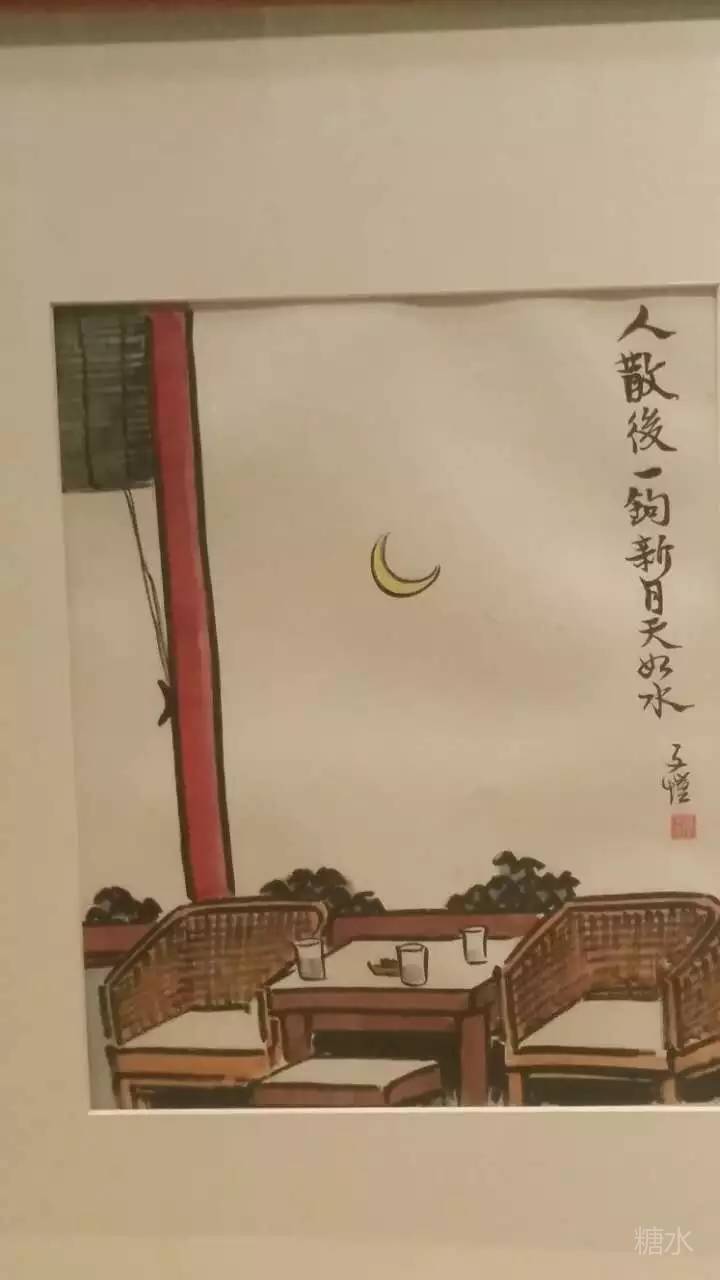 人散後一鈎新月天如水
子愷
糖水